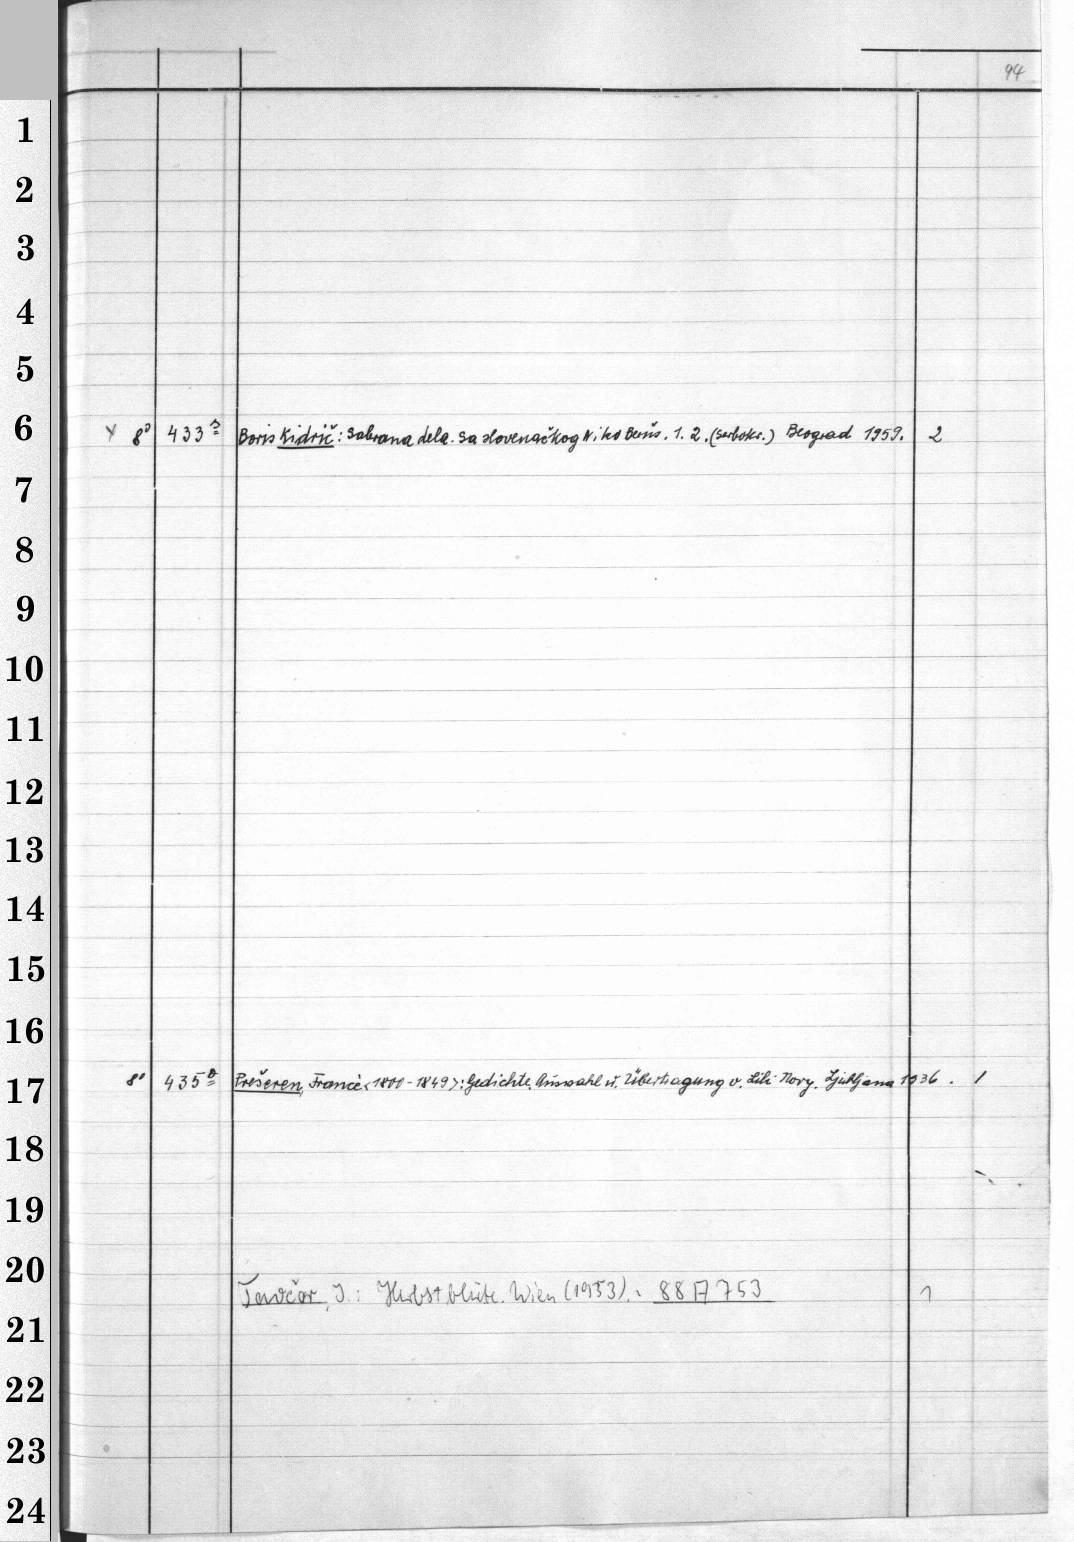 94
1
2
3
4
5
6
Y 8° 433 Boris Kidrič: Sabrana dela. Sa slovenačkog Niko Berus. 1. 2. (serbokr.) Beograd 1959. 2
7
8
9
10
11
12
13
14
15
16
17
8° 435 Prešeren, Francè <1800-1849>: Gedichte. Auswahl u. Übertragung v. Lili Novy. Ljubljana 1936. 1
18
19
20
Tavčar, J.: Herbstblüte. Wien (1953). 88 A 753 1
21
22
23
24